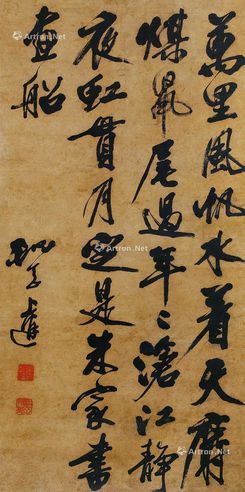 萬里風帆水着天麝
煤鼠尾過年〻滄江靜
夜虹貫月定是米家書
畫船
Artron.Net
Artron.Net
Artron.Net